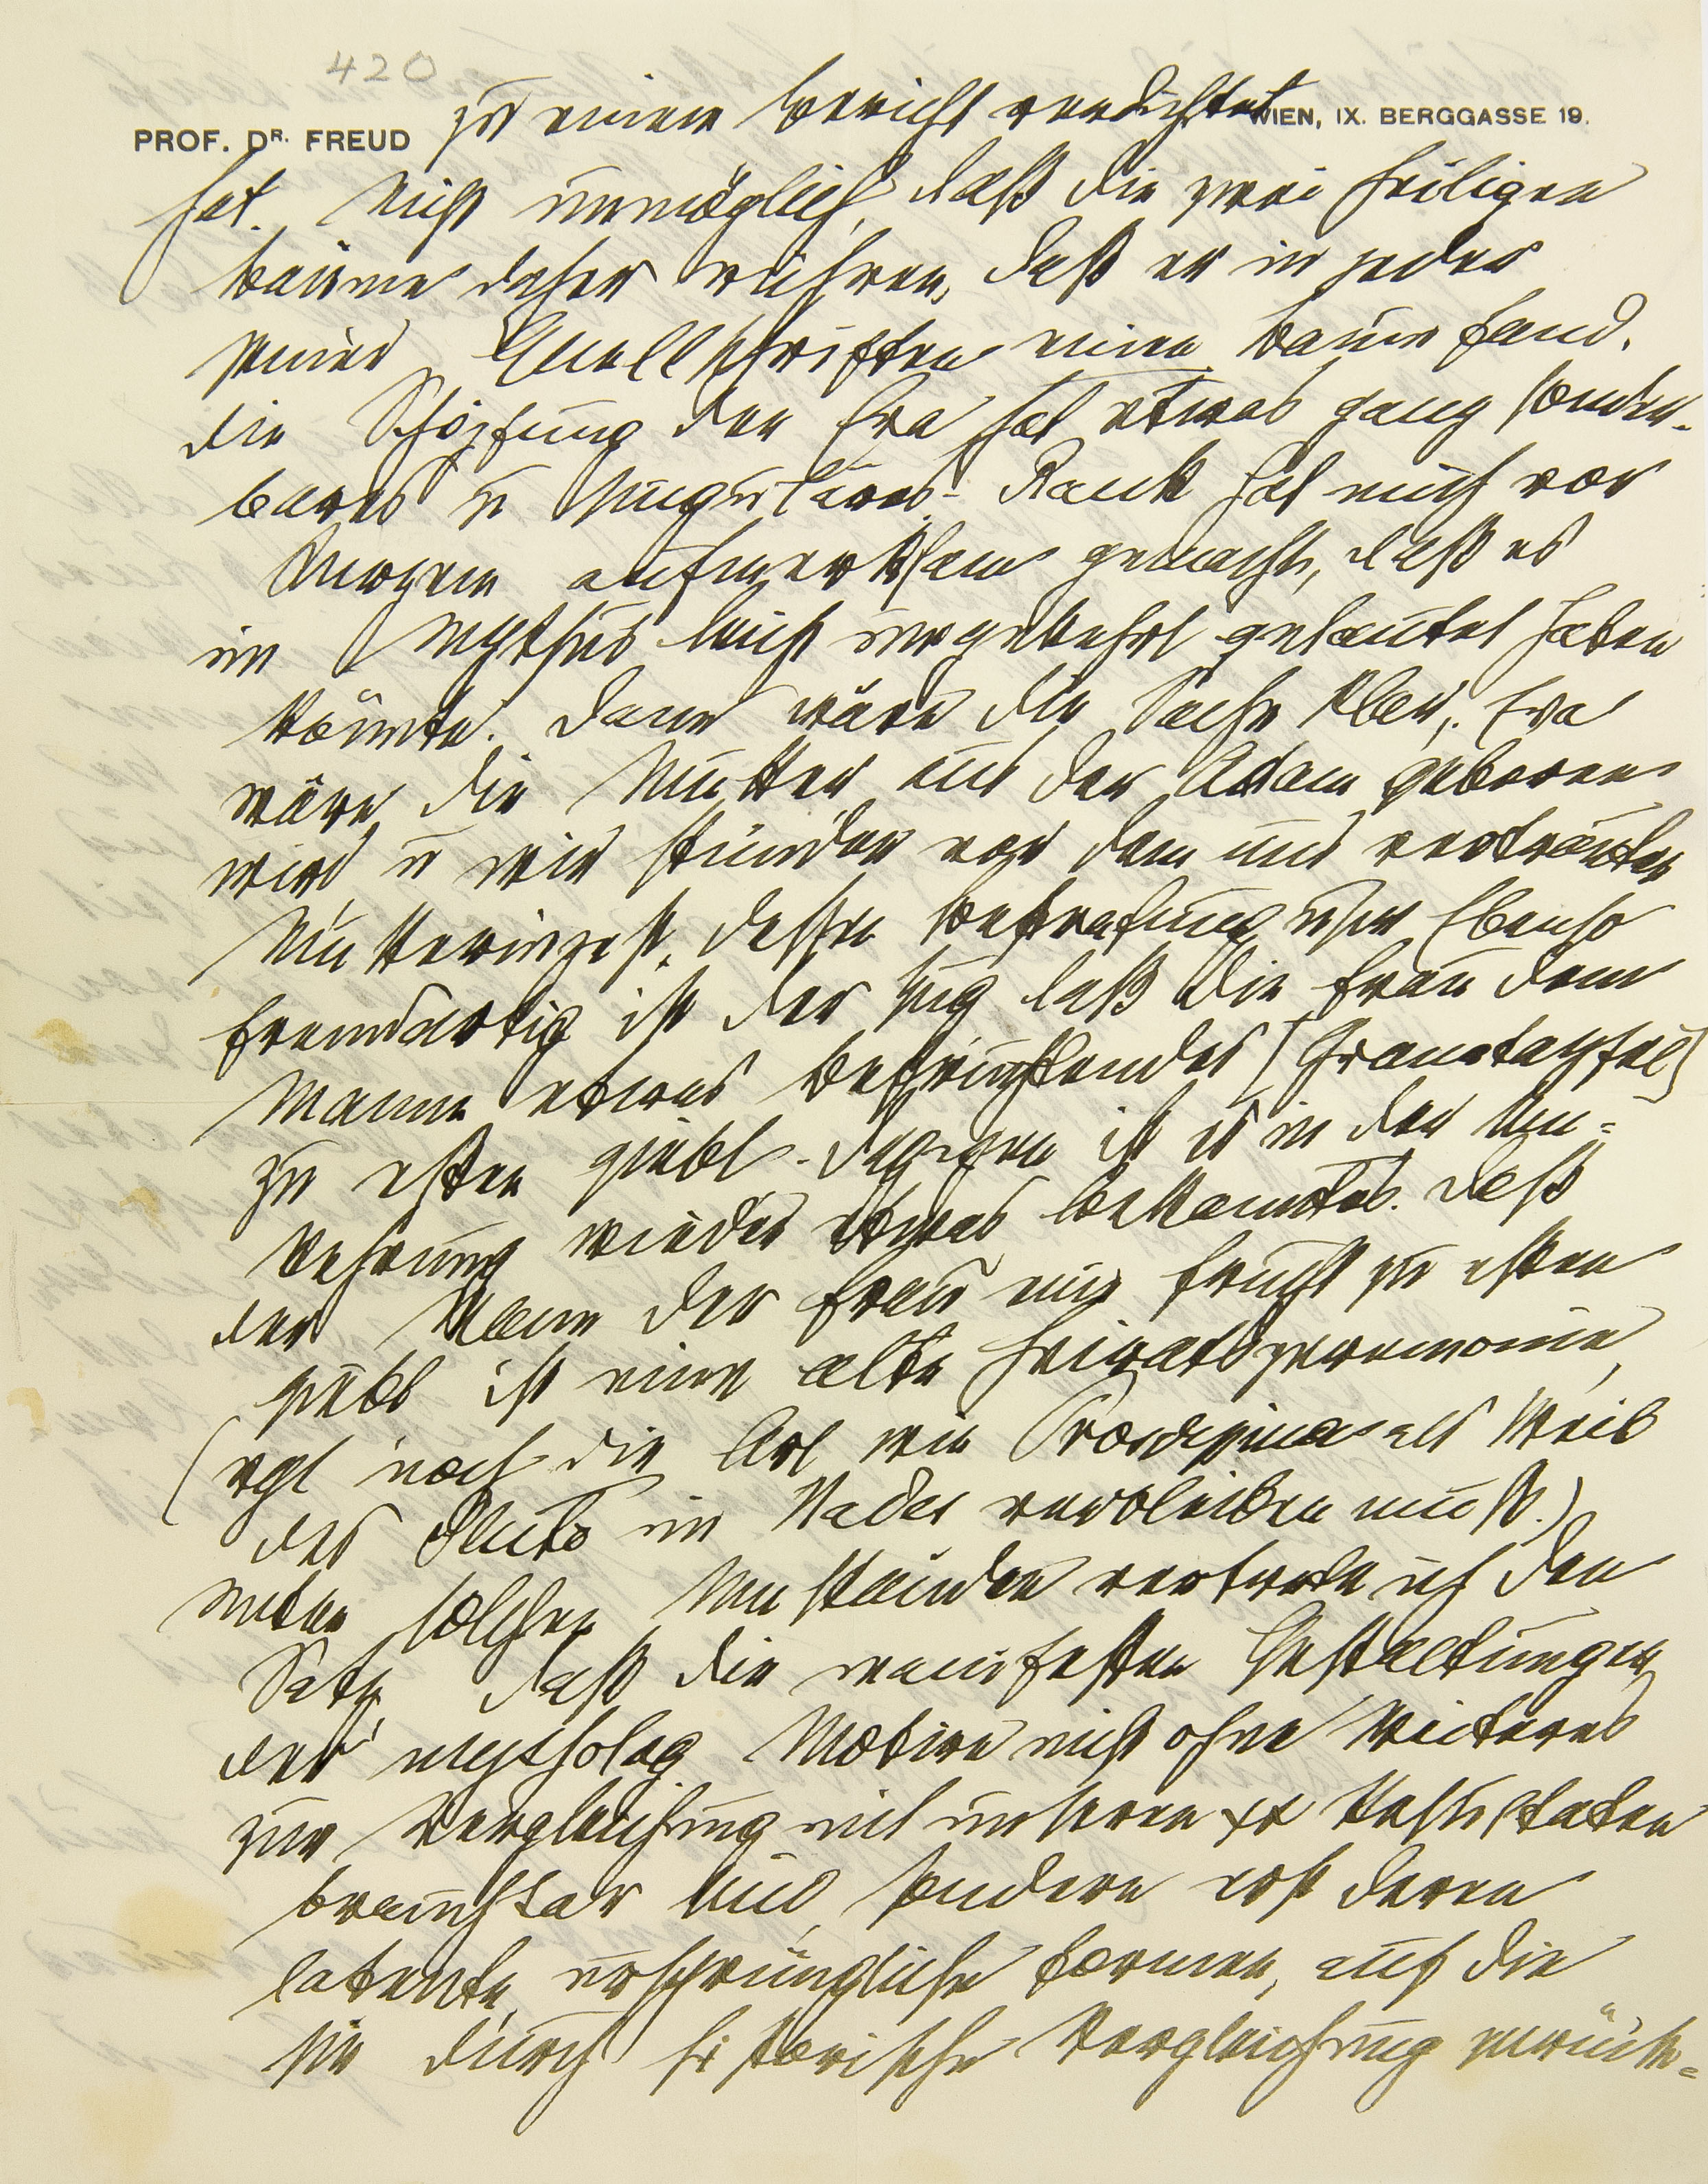 420
PROF. DR. FREUD
WIEN, IX. BERGGASSE 19.
zu einem Bericht verdichtet
hat. Nicht unmöglich, daß die zwei heiligen
Bäume daher rühren, daß er in jeder
seiner Quellschriften einen Baum fand.
Die Schöpfung der Eva hat etwas ganz sonder-
bares u Singuläres. Rank hat mich vor
kurzem aufmerksam gemacht, daß es
im Mythus leicht umgekehrt gelautet haben
könnte. Dann wäre die Sache klar; Eva
wäre die Mutter aus der Adam geboren
wird u wir stünden vor dem uns vertrauten
Mutterinzest, dessen Bestrafung usw Ebenso
fremdartig ist der Zug daß die Frau dem
Manne etwas Befruchtendes (Granatapfel)
zu essen giebt. Dagegen ist es in der Um-
kehrung wieder etwas bekanntes. Daß
der Mann der Frau eine Frucht zu essen
giebt ist eine alte Heiratszeremonie
(vgl noch die Art wie Proserpina als Weib
des Pluto im Hades verbleiben muß.)
Unter solchen Umständen vertrete ich den
Satz, daß die manifesten Gestaltungen
der mytholog Motive nicht ohne Weiteres
zur Vergleichung mit unseren Resultaten
brauchbar sind, sondern erst deren
latente, ursprüngliche Formen, auf die
sie durch historische Vergleichung zurück-